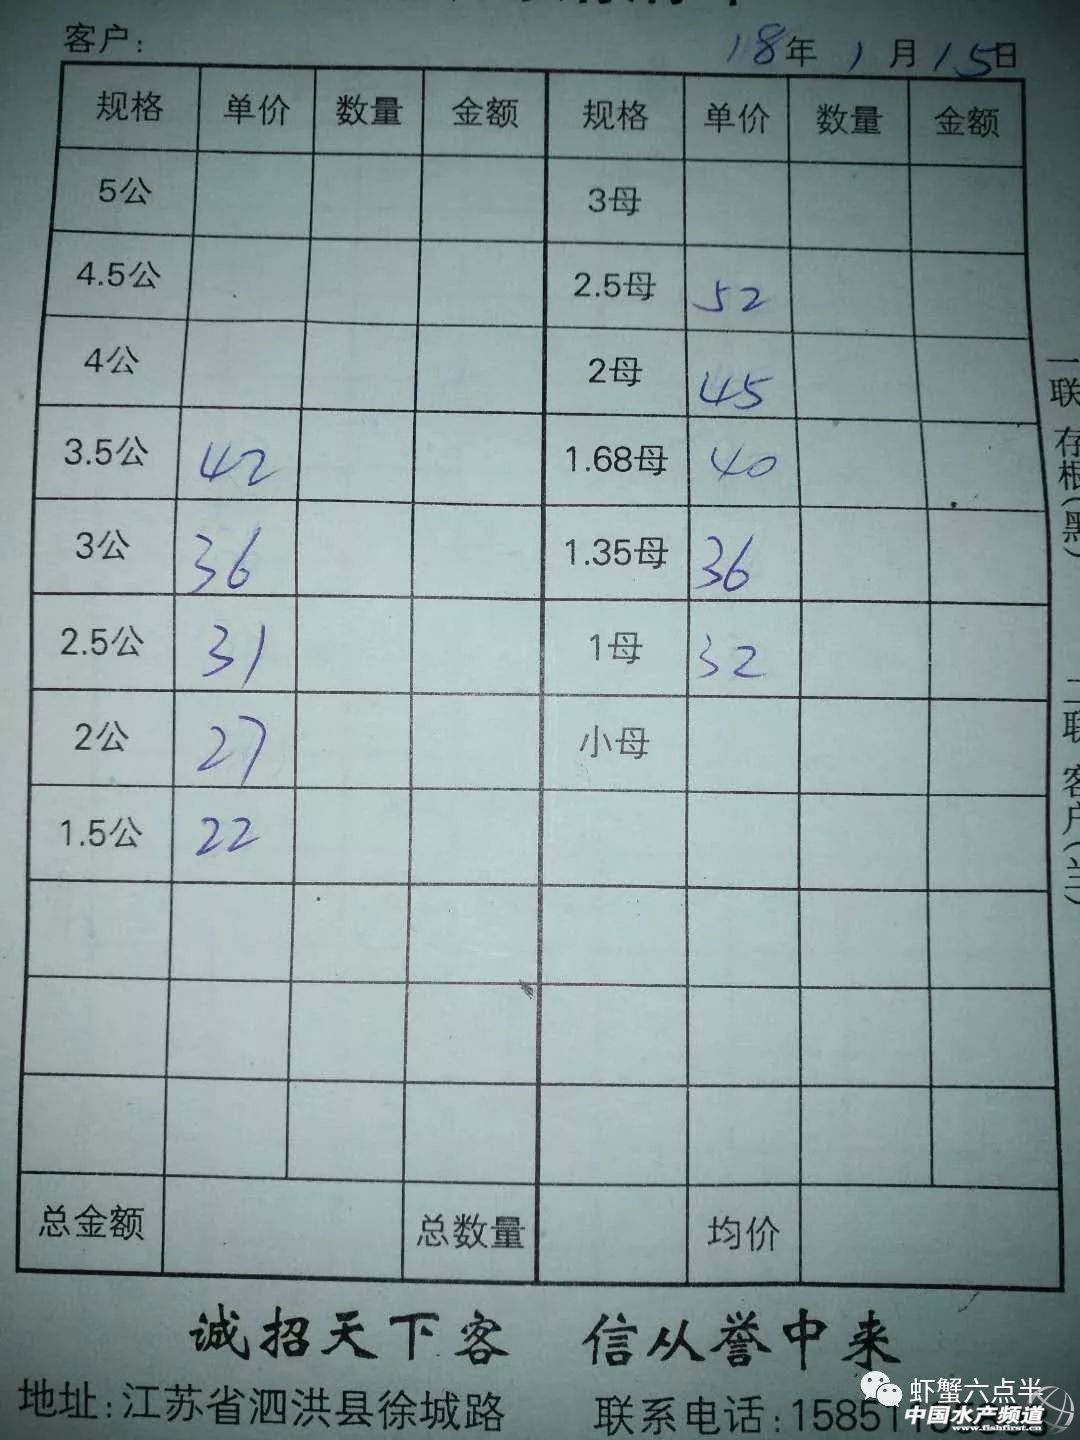 客户: 18年 1月 15日
规格 单价 数量 金额 规格 单价 数量 金额
5公 3母
4.5公 2.5母 52
4公 2母 45
3.5公 42 1.68母 40
3公 36 1.35母 36
2.5公 31 1母 32
2公 27 小母
1.5公 22
总金额 总数量 均价
诚招天下客 信从誉中来
地址:江苏省泗洪县徐城路 联系电话:15851
一联 存根(黑)
二联 客户(兰)
虾蟹六点半
中国水产频道
www.fishfirst.cn